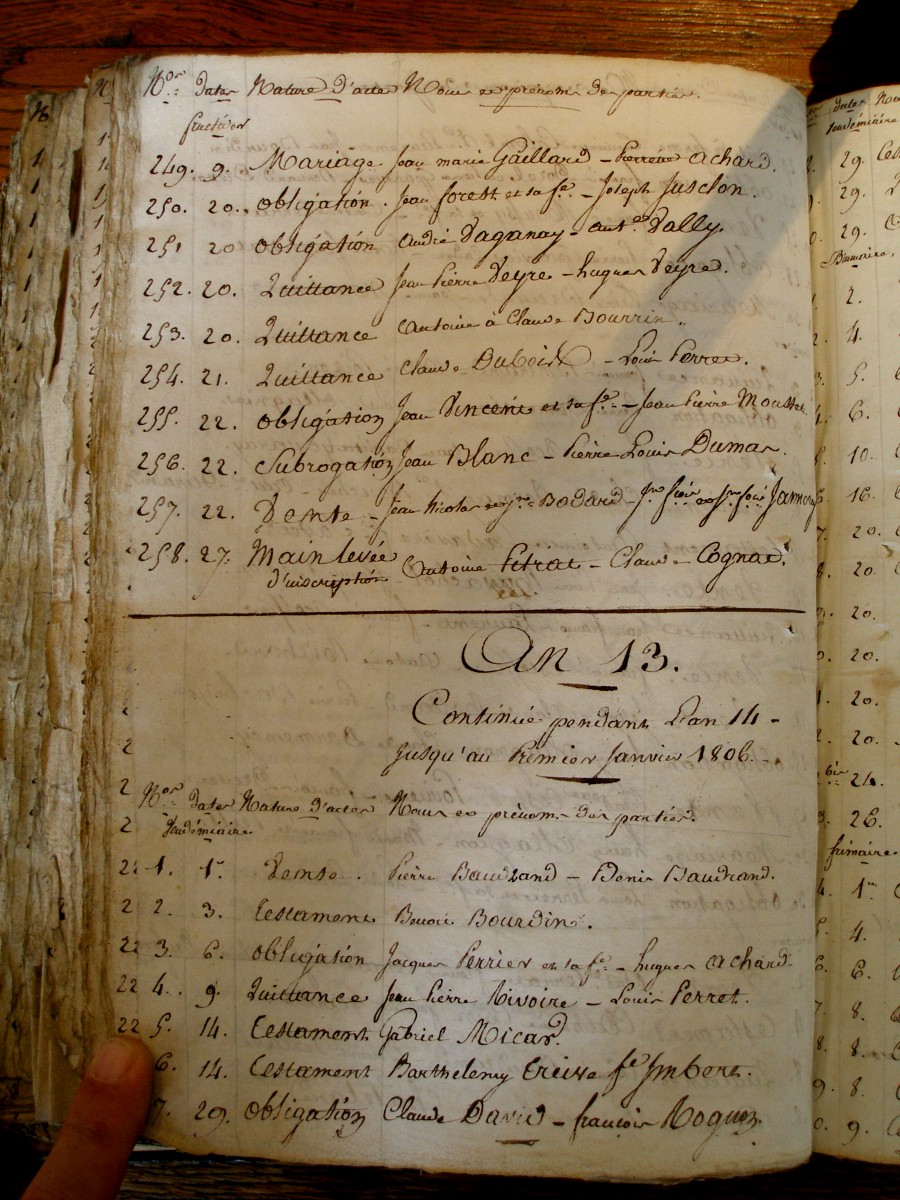 Nos. Dates Nature D'actes Noms et prénoms Des parties.
fructidor
249. 9. Mariage. Jean marie Gaillard - Pierrine Achard.
250. 20. obligation. Jean forest et sa fe. - Joseph Jusclon.
251 20 obligation André Paganay - ant.e Vally.
252. 20. Quittance Jean Pierre Veyre - hugues Veyre.
253. 20. Quittance Antoine à Claude Bourrin.
254. 21. Quittance Claude Dubois - Louis Perret.
255. 22. obligation Jean Vincent et sa fe. - Jean Pierre Mousset.
256. 22. Subrogation Jean Blanc - Pierre Louis Dumas.
257. 22. Vente - Jean Nicolas Bodard -
258. 27. Main levée
d'inscription Antoine Pitrat - Claude Cognac.
An 13.
Continué pendant L'an 14 -
Jusqu'au Premier Janvier 1806.
Nos. Dates Nature D'actes Noms et prénoms Des parties.
Vendémiaire.
1. 1er Vente. Pierre Baudrand - Denis Baudrand.
2. 3. Testament Benoit Bourdin.
3. 6. obligation Jacques Perrier et sa fe. - hugues Achard.
4. 9. Quittance Jean Pierre Rivoire - Louis Perret.
5. 14. Testament Gabriel Micard.
6. 14. Testament Barthelemy Treive fe Imbert.
7. 29. obligation Claude David - françois Roguez.
Dates
Vendémiaire
29.
29.
29.
Brumaire.
2.
4.
5.
6.
10.
16.
20.
20.
20.
20.
20.
20.
24.
26.
frimaire.
1er
4.
6.
8.
8.
8.
9.